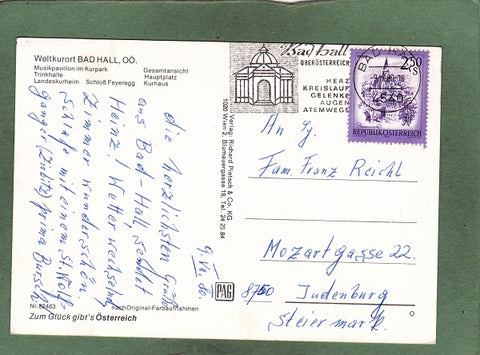 Weltkurort BAD HALL, OÖ.
Musikpavillon im Kurpark Gesamtansicht
Trinkhalle Hauptplatz
Landeskurheim Schloß Feyeregg Kurhaus
die herzlichsten Grüße
aus Bad-Hall, sendet
Heinz! Wetter wechselnd
Zimmer wunderschön
schlafe mit einem St. Wolf-
ganger (Zivilist) prima Bursch
9. VII. 80.
Nr. 62463 nach Original-Farbaufnahmen
Zum Glück gibt's Österreich
Verlag: Richard Pietsch & Co. KG.
1020 Wien 2, Blumauergasse 19, Tel. 24 25 84
PAG
Bad Hall
OBERÖSTERREICH
HERZ
KREISLAUF
GELENKE
AUGEN
ATEMWEGE
BAD HALL
4540
2.50
S
REPUBLIK ÖSTERREICH
An Fg.
Fam. Franz Reichl
Mozartgasse 22.
8750 Judenburg
Steiermark.